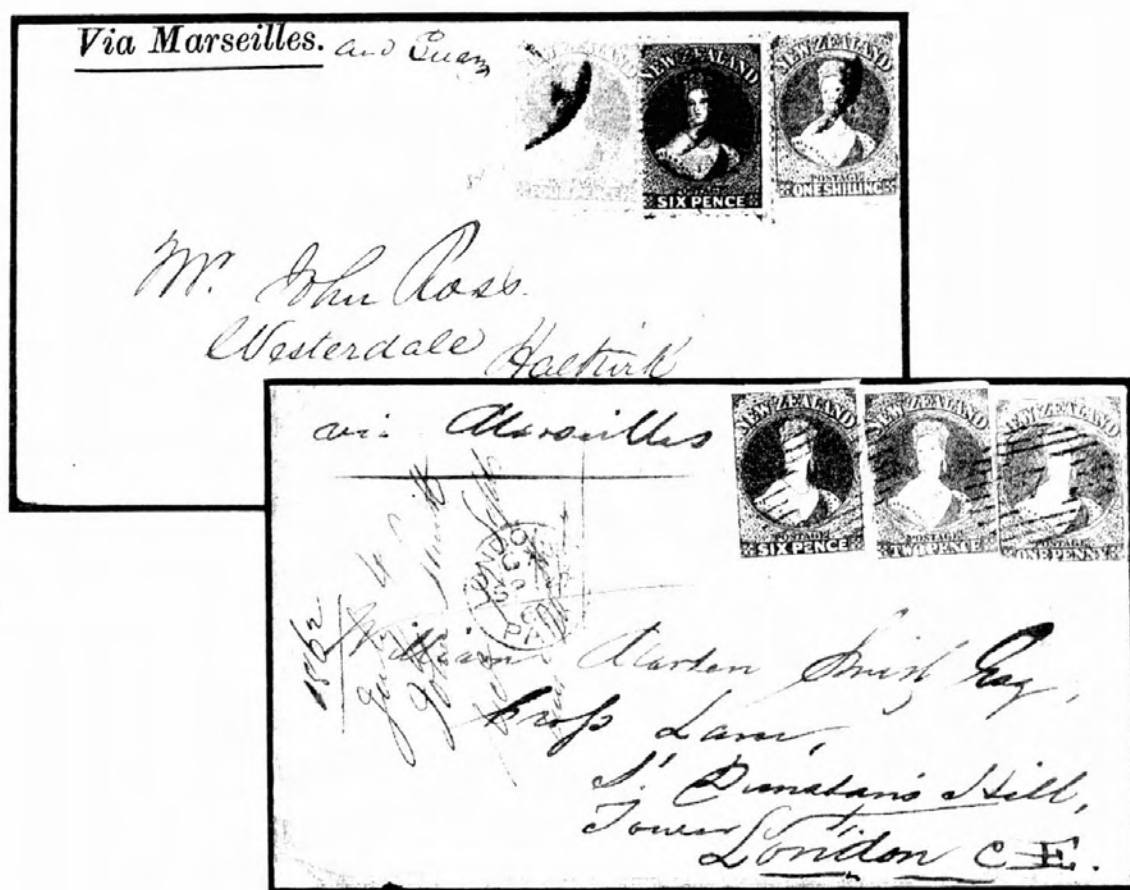 Via Marseilles. and Suez
NEW ZEALAND
POSTAGE
SIX PENCE
NEW ZEALAND
POSTAGE
ONE SHILLING
Mr. John Ross.
Westerdale Halkirk
via Marseilles
NEW ZEALAND
POSTAGE
SIX PENCE
NEW ZEALAND
POSTAGE
TWO PENCE
NEW ZEALAND
POSTAGE
ONE PENNY
1862
William Marten Smith Esq,
Cross Lane,
St. Dunstan's Hill,
Tower
London E.